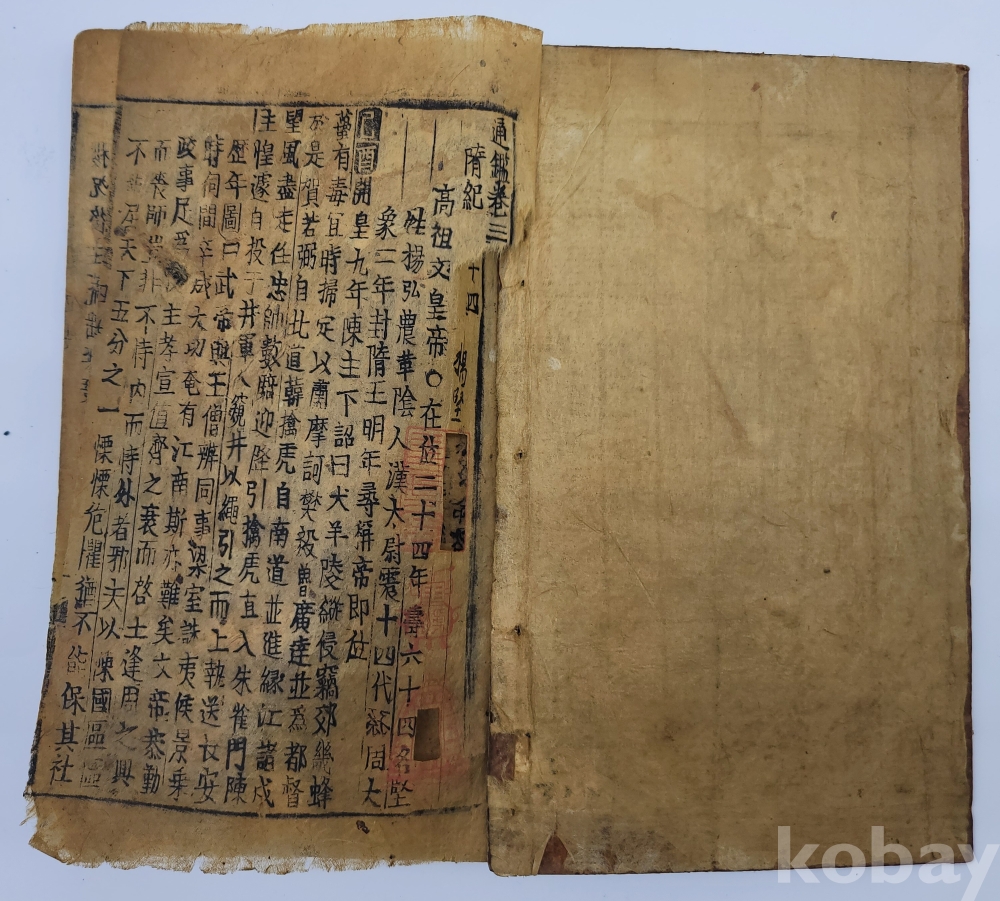 通鑑卷三十四
隋紀
高祖文皇帝〇在位二十四年壽六十四名堅
姓揚弘農華陰人漢太尉震十四代孫周大
象二年封隋王明年尋稱帝即位
開皇九年陳主下詔曰犬羊陵縱侵竊郊畿蜂
蠆有毒宜時掃定以蕭摩訶樊毅魯廣達並爲都督
於是賀若弼自北道韓擒虎自南道並進緣江諸戍
望風盡走任忠帥數騎迎降引擒虎直入朱雀門陳
主惶遽自投于井軍人窺井以繩引之而上執送長安
歷年圖曰武帝與王僧辨同事梁室誅夷侯景乘
時伺間卒成大功奄有江南斯亦難矣文帝恭勤
政事足爲 主孝宣值齊之衰而啓土逢周之興
而喪師豈非不恃內而恃外者邪夫以陳國區區
不 居天下五分之一慄慄危懼猶不能保其社
kobay